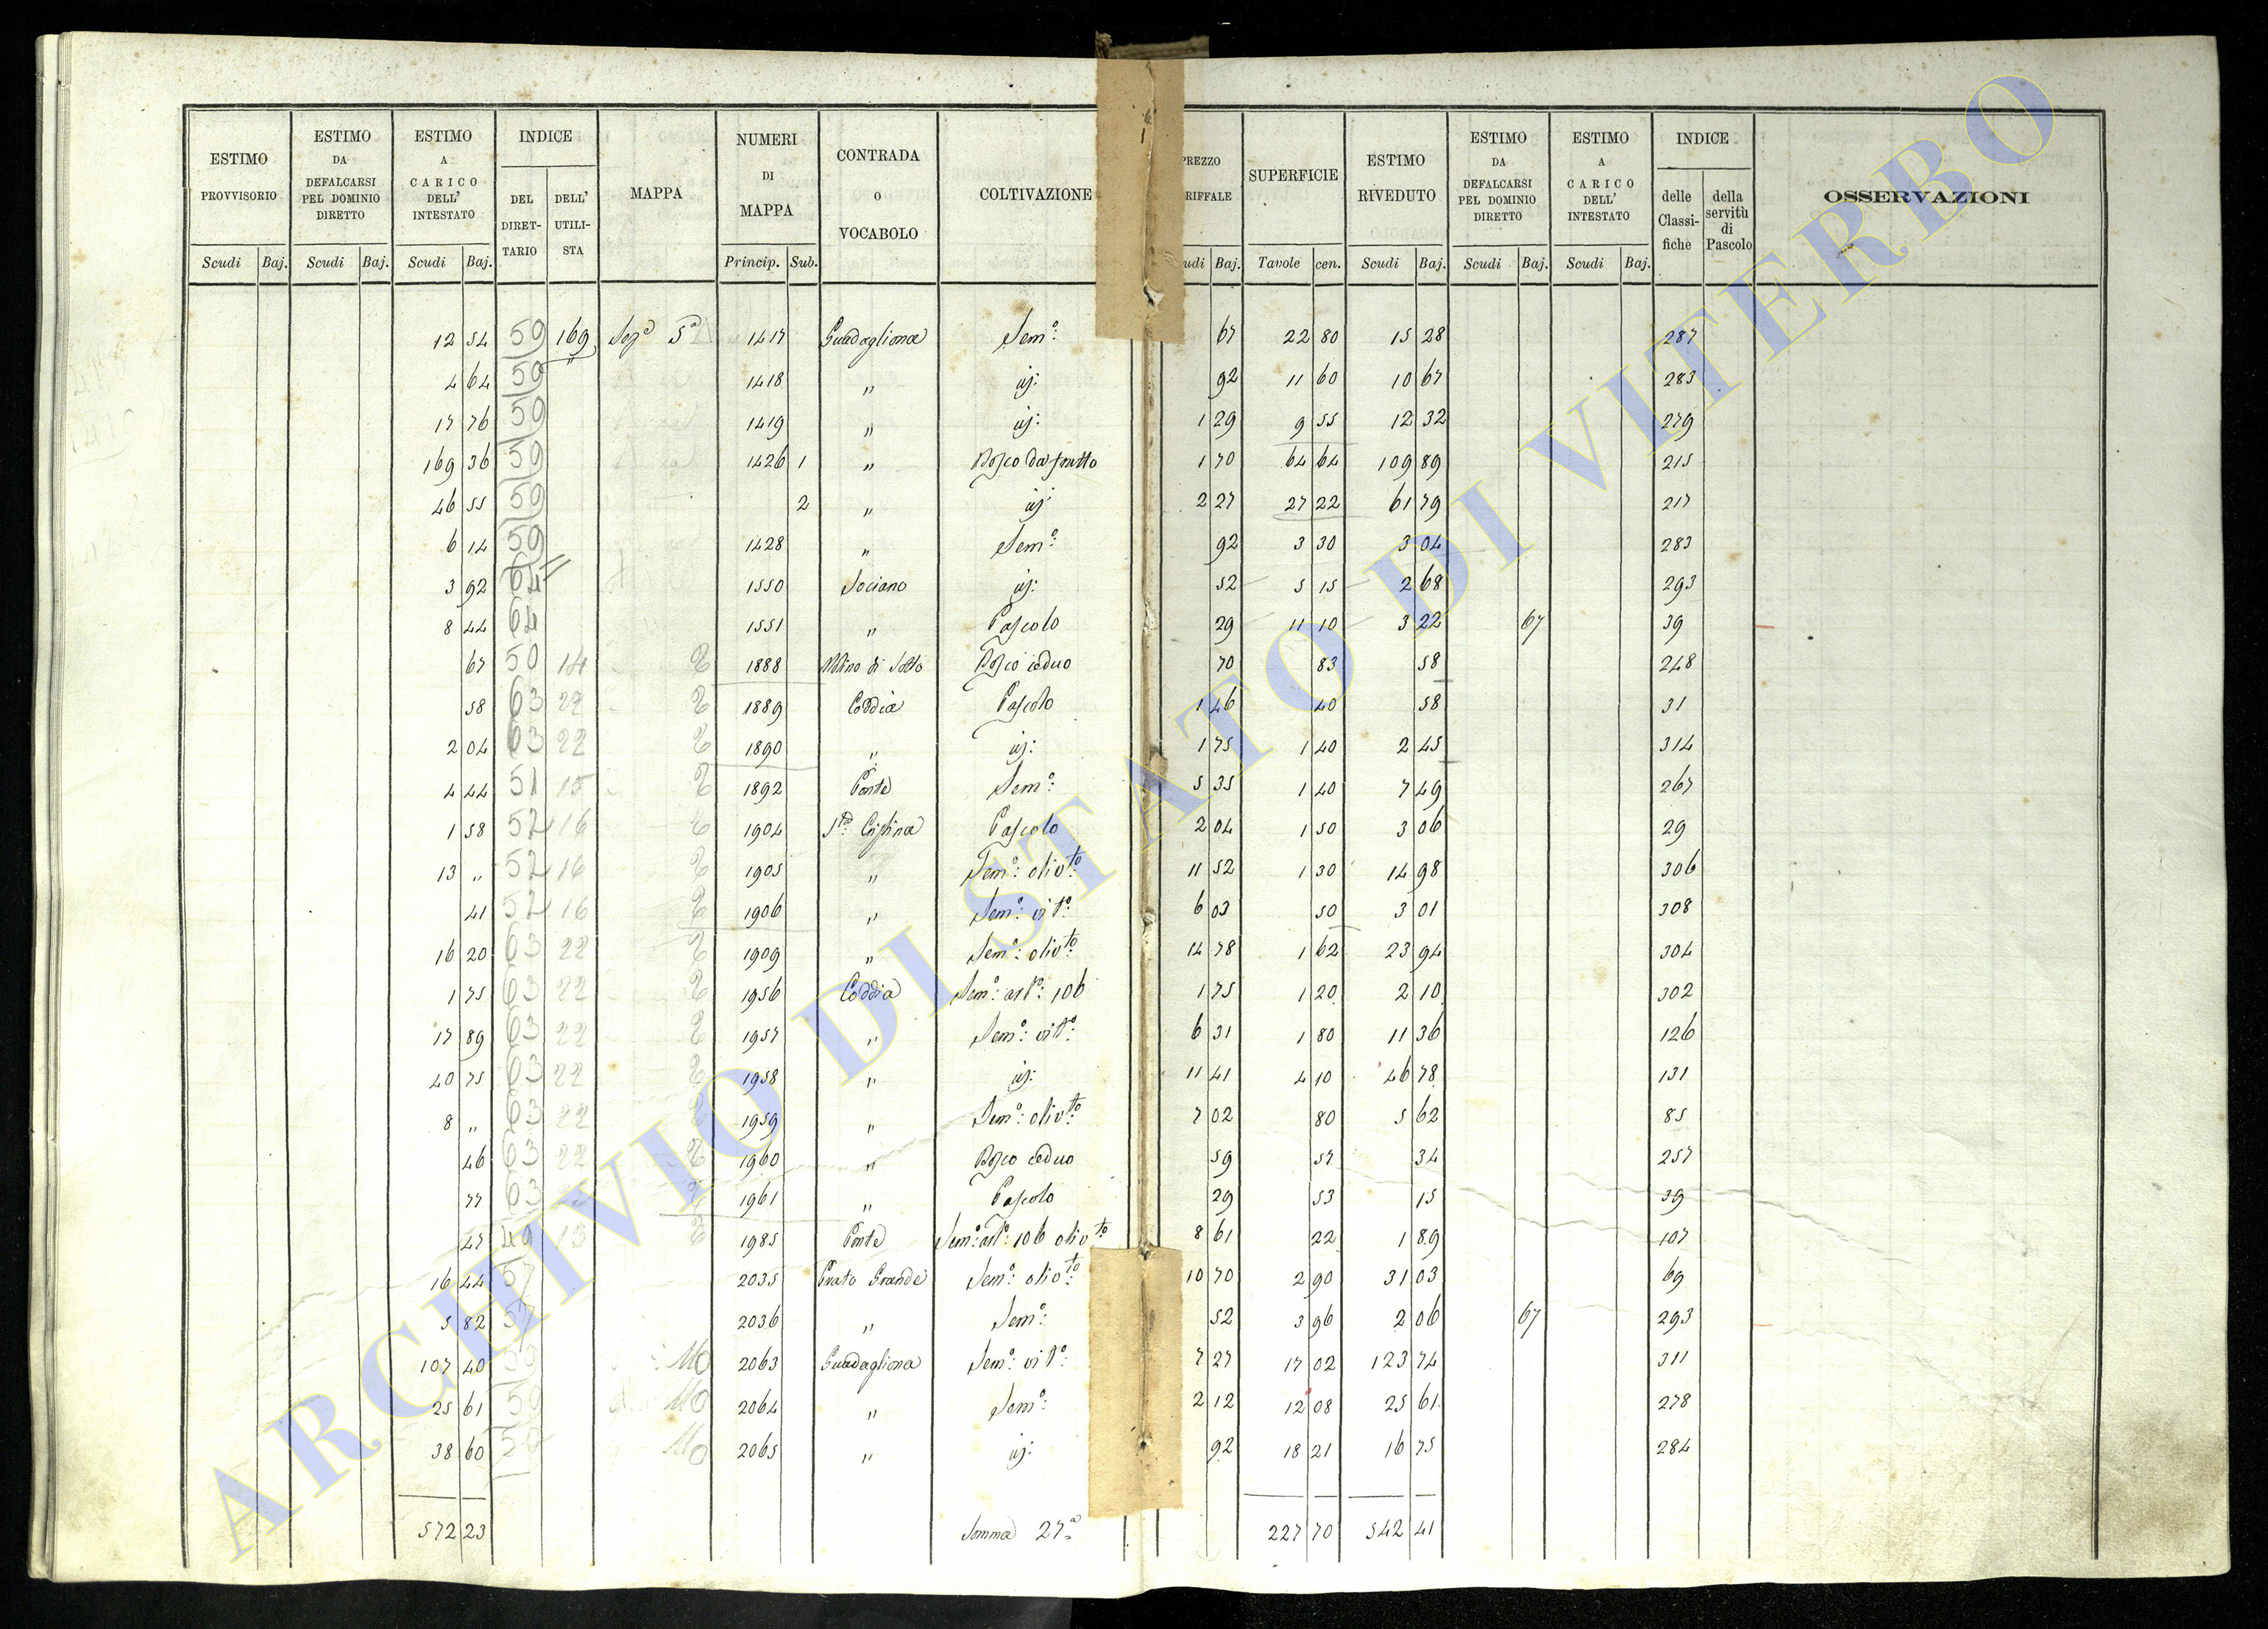 ESTIMO PROVVISORIO
ESTIMO DA DEFALCARSI PEL DOMINIO DIRETTO
ESTIMO A CARICO DELL' INTESTATO
INDICE
DEL DIRET-TARIO
DELL' UTILI-STA
MAPPA
NUMERI DI MAPPA
CONTRADA O VOCABOLO
COLTIVAZIONE
PREZZO RIFFALE
SUPERFICIE
ESTIMO RIVEDUTO
ESTIMO DA DEFALCARSI PEL DOMINIO DIRETTO
ESTIMO A CARICO DELL' INTESTATO
INDICE
delle Classi-fiche
della servitù di Pascolo
OSSERVAZIONI
Scudi Baj. Scudi Baj. Scudi Baj. Princip. Sub. udi Baj. Tavole cen. Scudi Baj. Scudi Baj. Scudi Baj.
12 54 59 169 Sezª 5ª 1417 Guadagliona Semº: 67 22 80 15 28 287
4 64 59 " 1418 " id: 92 11 60 10 67 283
17 76 59 1419 " id: 1 29 9 55 12 32 279
169 36 59 1426 1 " Bosco da frutto 1 70 64 64 109 89 215
46 55 59 2 " id 2 27 27 22 61 79 217
6 14 59 1428 " Semº: 92 3 30 3 04 283
3 92 64 1550 Sociano id: 52 5 15 2 68 293
8 44 64 1551 " Pascolo 29 11 10 3 22 67 39
67 50 14 2 1888 Molino di Sotto Bosco ceduo 70 83 58 248
58 63 22 2 1889 Coddia Pascolo 1 46 40 58 31
2 04 63 22 2 1890 " id: 1 75 1 40 2 45 314
4 44 51 15 2 1892 Ponte Semº: 5 35 1 40 7 49 267
1 58 52 16 2 1904 Sta: Cristina Pascolo 2 04 1 50 3 06 29
13 " 52 16 2 1905 " Semº: olivto: 11 52 1 30 14 98 306
41 52 16 2 1906 " Semº: vitº: 6 03 50 3 01 308
16 20 63 22 2 1909 " Semº: olivto: 14 78 1 62 23 94 304
1 75 63 22 2 1956 Coddia Semº: artº: 106 1 75 1 20 2 10 302
17 89 63 22 2 1957 " Semº: vitº: 6 31 1 80 11 36 126
40 75 63 22 2 1958 " id: 11 41 4 10 46 78 131
8 " 63 22 2 1959 " Semº: olivto: 7 02 80 5 62 85
46 63 22 2 1960 " Bosco ceduo 59 57 34 257
77 63 2 1961 " Pascolo 29 53 15 39
47 49 13 2 1985 Ponte Semº: artº: 106 olivto: 8 61 22 1 89 107
16 44 57 2035 Prato Grande Semº: olivto: 10 70 2 90 31 03 69
5 82 57 2036 " Semº: 52 3 96 2 06 67 293
107 40 59 Mo 2063 Guadagliona Semº: vitº: 7 27 17 02 123 74 311
25 61 59 Mo 2064 " Semº: 2 12 12 08 25 61 278
38 60 59 Mo 2065 " id: 92 18 21 16 75 284
572 23 Somma 27ª 227 70 542 41
ARCHIVIO DI STATO DI VITERBO